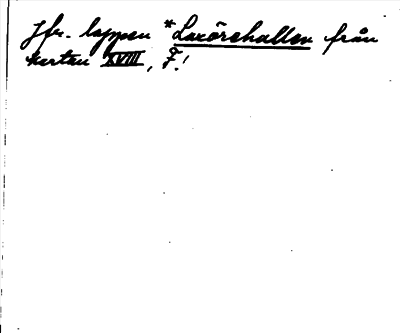 Jfr. lappen *Laxörshallen från
kartan XVIII, F!